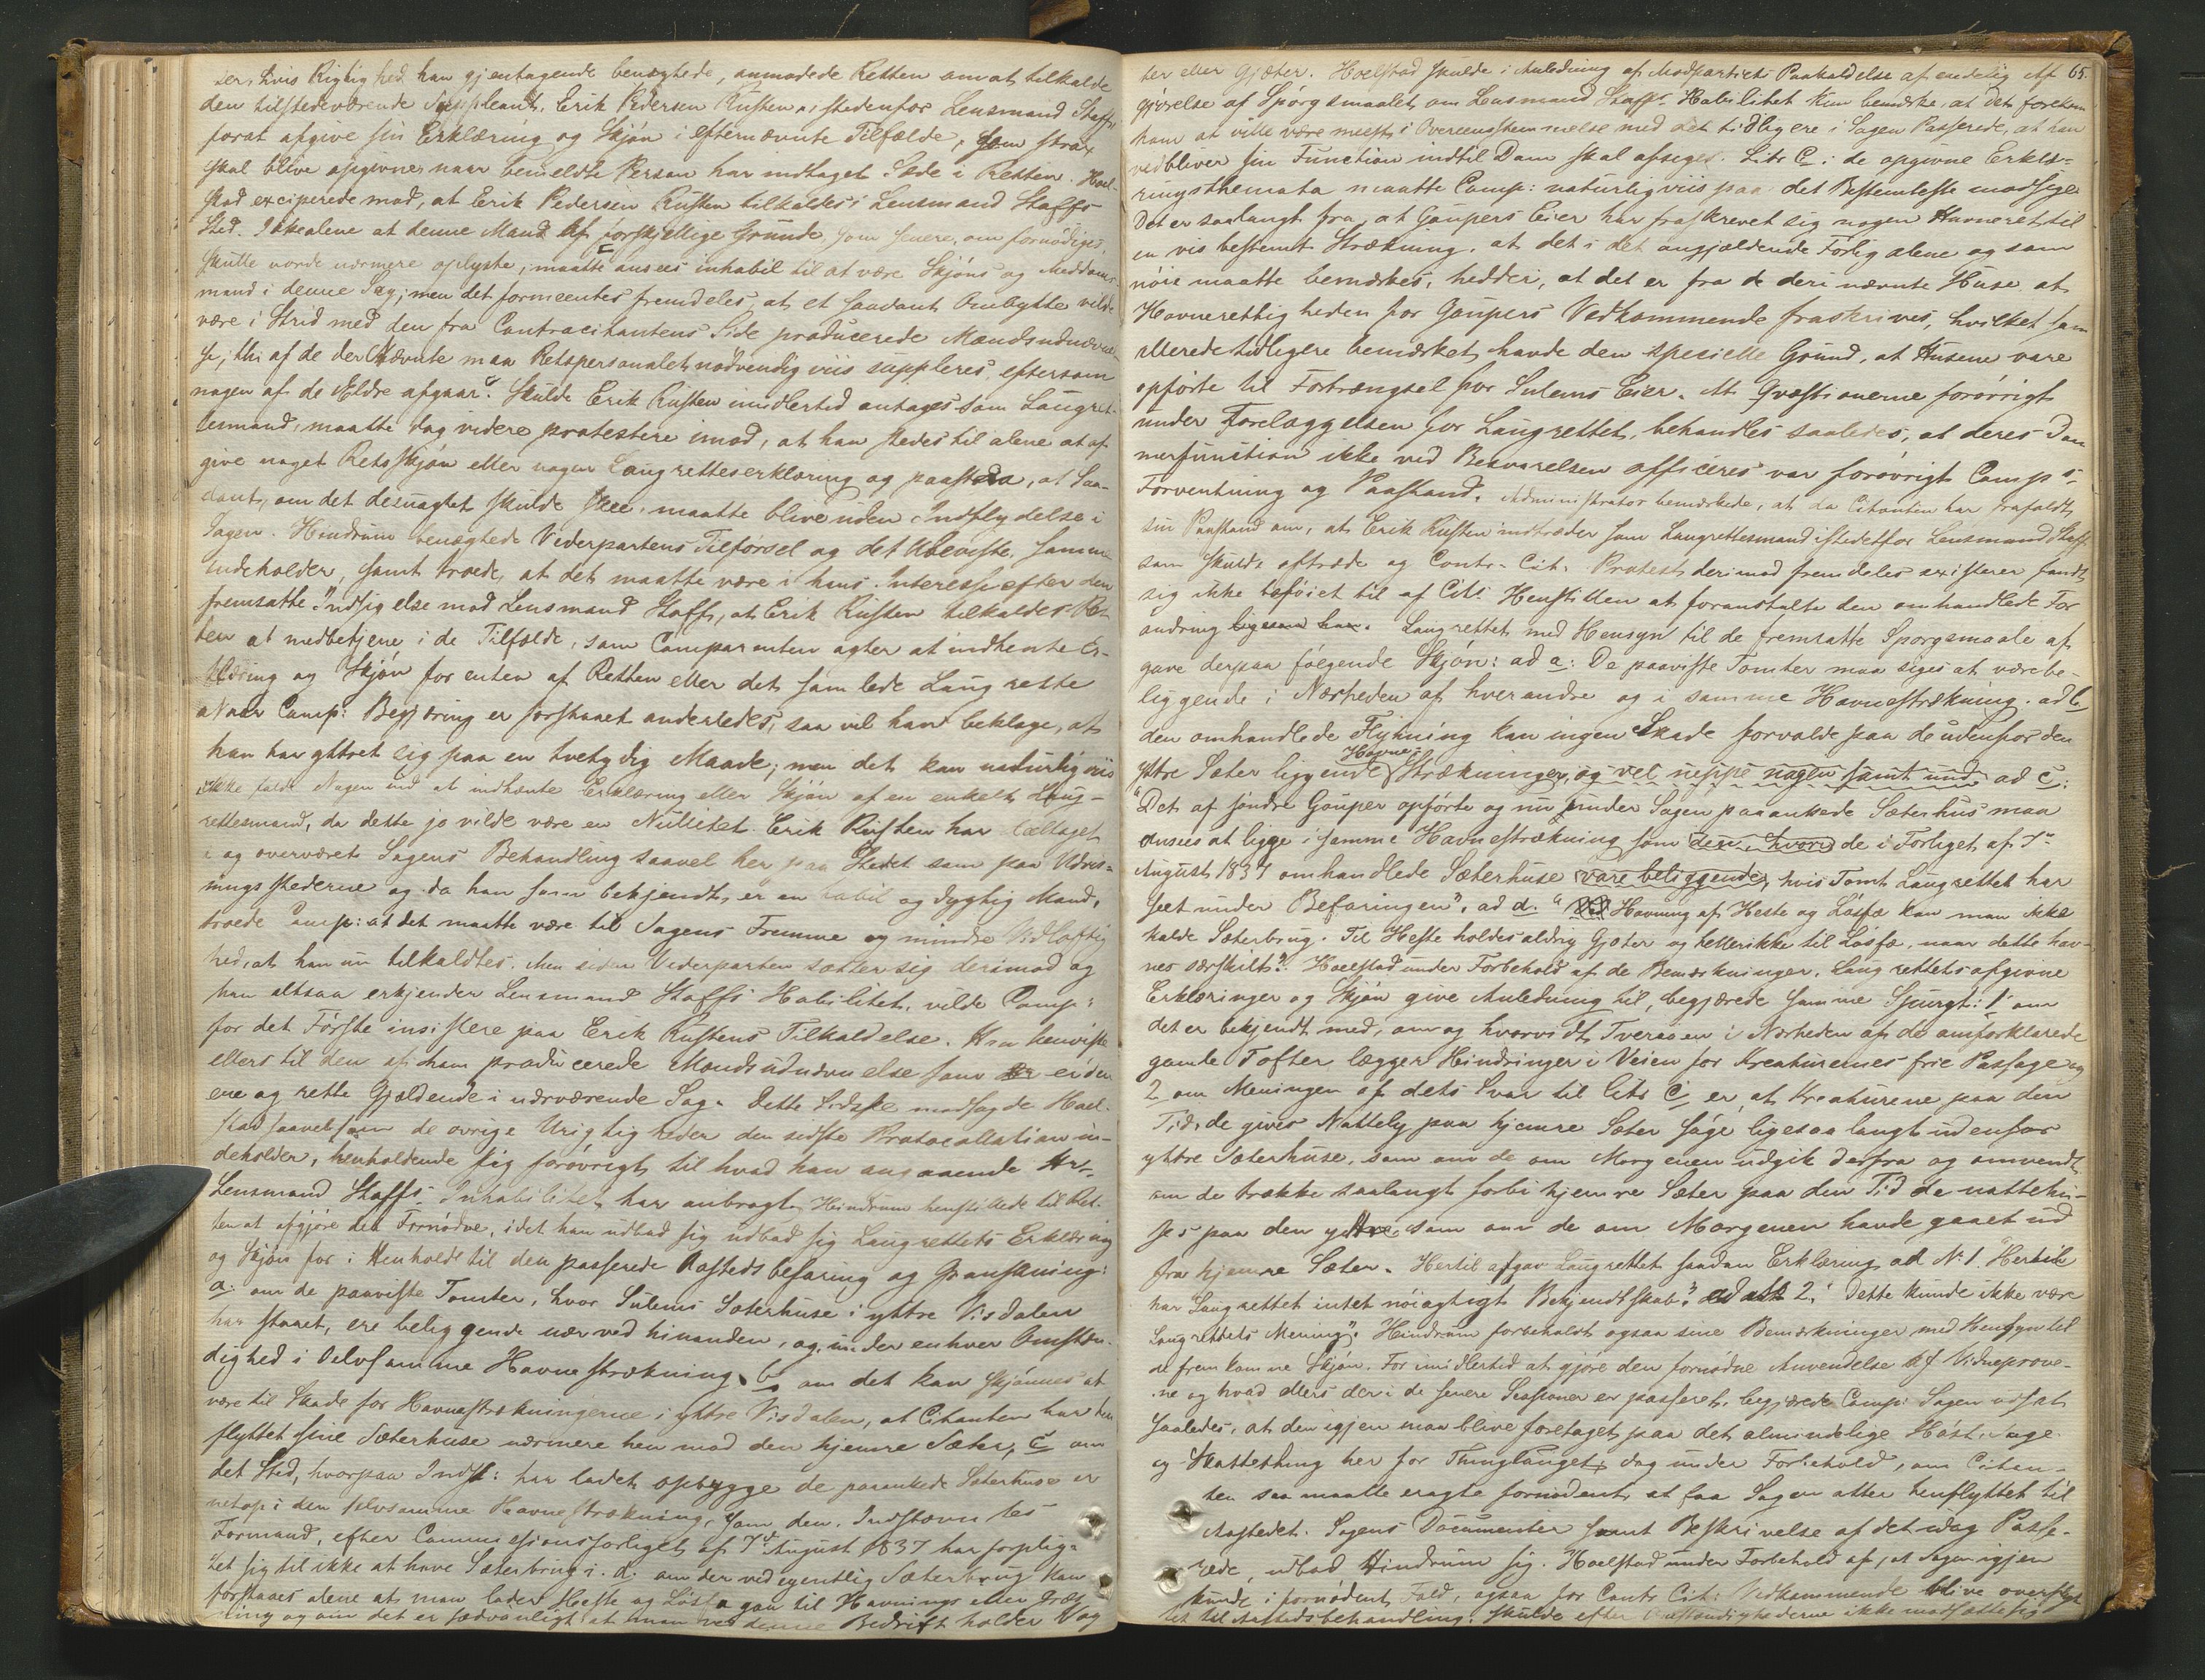 ser, hvis Rigtighed han gjentagende benægtede, anmodede Retten om at tilkalde
den tilstedeværende Suppleant, Erik Pedersen Rusten istedenfor Lensmand Staff,
forat afgive sin Erklæring og Skjøn i efternævnte Tilfælde, som strax
skal blive opgivne naar bemeldte Person har indtaget Sæde i Retten. Hoel-
stad exciperede mod, at Erik Pedersen Rusten tilkaldes i Lensmand Staffs
Sted. Ikke alene at denne Mand af forskjellige Grunde som senere, om fornødiges
skulle vorde nærmere oplyste, maatte ansees inhabil til at være Skjøns og Meddoms-
mand i denne Sag; men det formeentes fremdeles, at et saadant Ombytte vilde
være i Strid med den fra Contracitantens Side producerede Mandsudnævnel-
se, thi af de der Nævnte maa Retspersonalet nødvendigviis suppleres, eftersom
nogen af de Ældre afgaar. Skulde Erik Rusten imidlertid antages som Laugret-
tesmand, maatte dog videre protestere imod, at han stedes til alene at af-
give noget Retsskjøn eller nogen Laugretteserklæring og paastaa, at Saa-
dant, om det desuagtet skulde skee, maatte blive uden Indflydelse i
Sagen. Hindrum benægtede Vederpartens Tilførsel og det Ubeviste, samme
indeholder, samt troede, at det maatte være i hans Interesse efter den
fremsatte Indsigelse mod Lensmand Staff, at Erik Rusten tilkaldes Ret-
ten at medbetjene i de Tilfælde, som Comparenten agter at indhente Er-
klæring og Skjøn for enten af Retten eller det samlede Laugrette
Naar Comp: Begjæring er forstaaet anderledes, saa vil han beklage, at
han har yttret sig paa en tvetydig Maade; men det kan naturligviis
ikke falde Nogen ind at indhente Erklæring eller Skjøn af en enkelt Laug-
rettesmand, da dette jo vilde være en Nullitet. Erik Rusten har deeltaget
i og overværet Sagens Behandling saavel her paa Stedet som paa Udvis-
ningsstederne og da han som bekjendt, er en habil og dygtig Mand,
troede Comp: at det maatte være til Sagens Fremme og mindre Vidløftig-
hed, at han nu tilkaldtes. Men siden Vederparten sætter sig derimod og
han altsaa erkjender Lensmand Staffs Habilitet, vilde Comp:
for det Første insistere paa Erik Rustens Tilkaldelse. Han henviste
ellers til den af ham producerede Mandsudnævnelse som er den
ene og rette Gjældende i nærværende Sag. Dette Sidste modsagde Hoel-
stad saavelsom de øvrige Urigtigheder den sidste Protocollation in-
deholder, henholdende sig forøvrigt til hvad han angaaende
Lensmand Staffs Inhabilitet har anbragt. Hindrum henstillede til Ret-
ten at afgjøre det Fornødne, idet han udbad sig udbad sig Laugrettets Erklæring
og Skjøn for i Henhold til den passerede Aastedsbefaring og Granskning:
a. om de paaviste Tomter, hvor Sulems Sæterhuse i yttre Visdalen
har staaet, ere beliggende nær ved hinanden, og under enhver Omstæn-
dighed i selvsamme Havnestrækning, b. om det kan skjønnes at
være til Skade for Havnestrækningerne i yttre Visdalen, at Citanten har hen
flyttet sine Sæterhuse nærmere hen mod den hjemre Sæter, c. om
det Sted, hvorpaa Indst: har ladet opbygge de paaankede Sæterhuse er
netop i den selvsamme Havnestrækning, som den Indstævntes
Formand, efter Commissionsforliget af 7de August 1837 har forplig-
tet sig til ikke at have Sæterbrug i. d. om der ved egentlig Sæterbrug kan
forstaaes alene at man lader Heste og Løsfæ gaa til Havnings eller Græs-
ning og om det er sædvanligt at man ved denne Bedrift holder Vog
65.
ter eller Gjæter. Hoelstad skulde i Anledning af Modpartiets Paakaldelse af endelig Af
gjørelse af Spørgsmaalet om Lensmand Staffs Habilitet kun bemærke, at det forekom
ham at ville være meest i Overeensstemmelse med det tidligere i Sagen Passerede, at han
vedbliver sin Function indtil Dom skal afsiges. Litr C: de opgivne Erklæ-
ringsthemata maatte Comp: naturligviis paa det Bestemteste modsige
Det er saalangt fra, at Gaupers Eier har fraskrevet sig nogen Havneret til
en vis bestemt Strækning, at det i det angjældende Forlig alene og som
nøie maatte bemærkes, hedder, at det er fra de deri nævnte Huse at
Havnerettigheden for Gaupers Vedkommende fraskrives, hvilket som
allerede tidligere bemærket, havde den specielle Grund, at Husene vare
opførte til Fortrængsel for Sulems Eier. At Qvæstionerne forøvrigt
under Forelæggelsen for Laugrettet, behandles saaledes, at deres Dom
merfunction ikke ved Besvarelsen afficeres var forøvrigt Comps
Forventning og Paastand. Administrator bemærkede, at da Citanten har frafaldt
sin Paastand om, at Erik Rusten indtræder som Laugrettesmand istedetfor Lensmand Staff
som skulde aftræde og Contr. Cit. Protest derimod fremdeles existerer fandt
sig ikke beføiet til af Cits Henstillen at foranstalte den omhandlede For
andring ligesom han. Laugrettet med Hensyn til de fremsatte Spørgsmaale af
gave derpaa følgende Skjøn: ad a: De paaviste Tomter maa siges at være be-
liggende i Nærheden af hverandre og i samme Havnestrækning. ad b,
den omhandlede Flytning kan ingen Skade forvolde paa de udenfor den
yttre Sæter liggende Havne-Strækninger, og vel neppe nogen samt ind. ad c:
"Det af søndre Gauper opførte og nu under Sagen paaankede Sæterhus maa
ansees at ligge i samme Havnestrækning som den, hvori de i Forliget af 7de
August 1837 omhandlede Sæterhuse vare beliggende, hvis Tomt Laugrettet har
seet under Befaringen". ad d. "Ved Havning af Heste og Løsfæ kan man ikke
kalde Sæterbrug. Til Heste holdes aldrig Gjæter og hellerikke til Løsfæ, naar dette hav-
nes særskilt". Hoelstad under Forbehold af de Bemærkninger, Laugrettets afgivne
Erklæringer og Skjøn give Anledning til, begjærede samme Spurgt: 1 om
det er bekjendt med, om og hvorvidt Tveraaen i Nærheden af de omforklarede
gamle Tofter lægger Hindringer i Veien for Kreaturernes frie Passage og
2 om Meningen af dets Svar til Litr C er, at Kreaturene paa den
Tid, de gives Natteley paa hjemre Sæter søge ligesaa langt udenfor
yttre Sæterhuse, som om de om Morgenen udgik derfra og omvendt,
om de trække saalangt forbi hjemre Sæter paa den Tid de nattehu-
ses paa den yttre som om de om Morgenen havde gaaet ud
fra hjemre Sæter. Hertil afgav Laugrettet saadan Erklæring ad No 1. "Hertil
har Laugrettet intet nøiagtigt Bekjendtskab". ad 2. "Dette kunde ikke være
Laugrettets Mening". Hindrum forbeholdt ogsaa sine Bemærkninger med Hensyn til
de fremkomne Skjøn. For imidlertid at gjøre den fornødne Anvendelse af Vidneprove-
ne og hvad ellers der i de senere Sessioner er passeret, begjærede Comp: Sagen udsat
saaledes, at den igjen maa blive foretaget paa det almindelige Høst-, Sage-
og Skattething her for Thinglauget, dog under Forbehold, om Citan-
ten saa maatte eragte fornødent at faa Sagen atter henflyttet til
Aastedet. Sagens Documenter samt Beskrivelse af det idag Passe-
rede, udbad Hindrum sig. Hoelstad under Forbehold af, at Sagen igjen
kunde i fornødent Fald, ogsaa for Contr Cit: Vedkommende blive overflyt
tet til Aastedsbehandling, skulde efter Omstændighederne ikke modsætte sig